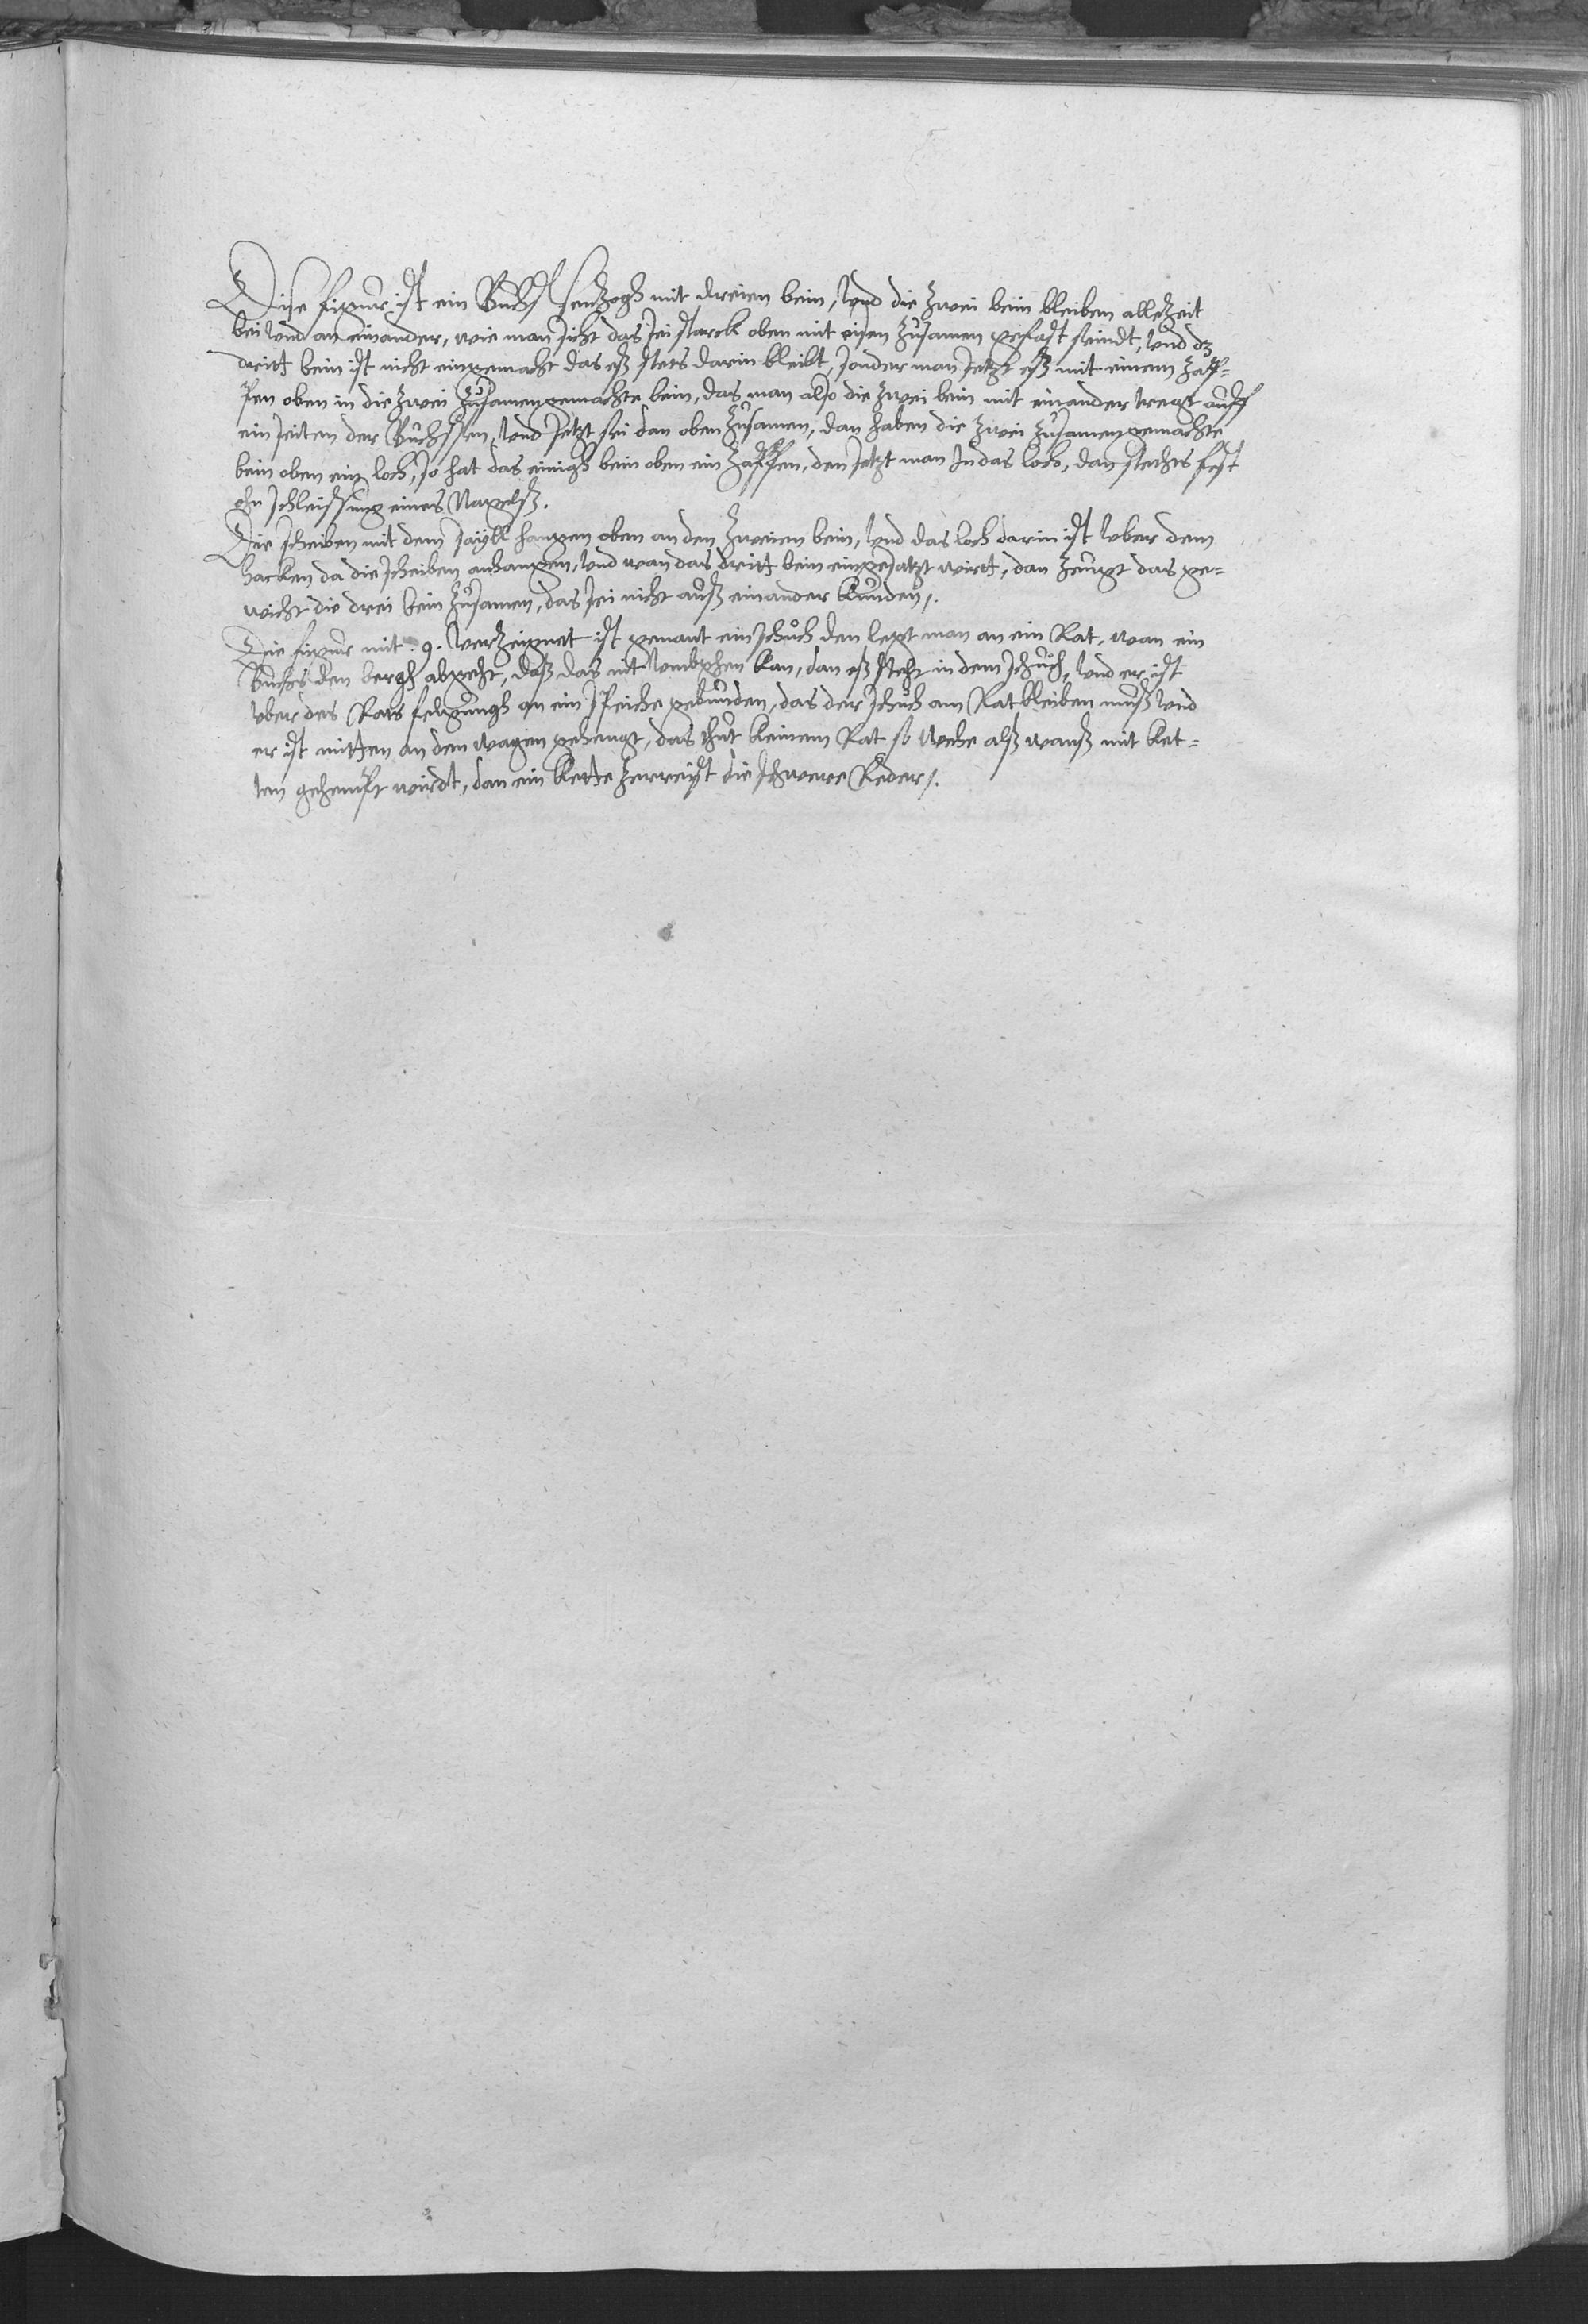 Dise figur ist ein Buchssenzogh mit dreien bein, vnd die zwei bein bleiben allezeit
bei vnd an einander, wie man sicht das sei starck oben mit eisen zusamen gefast seindt, vnd dz
dritt bein ist nicht eingemacht das eß stets darin bleibt, sonder man setzt eß mit einem Zapf-
fen oben in die zwei zusamengemachte bein, das man also die zwei bein mit einander tregt auff
ein seiten der Buchssen, vnd setzt sei dan oben zusamen, dan haben die zwei zusamengemachte
bein oben ein loch, so hat das einigh bein oben ein Zapffen, den setzt man In das loch, dan stehts fest
ohn schleissung eines Nagelß.
Die scheiben mit dem sayll hangen oben an den zweien bein, vnd das loch darin ist vber dem
hacken da die scheiben anhangen, vnd wan das dritt bein eingesatzt wirtt, dan zeugt das ge-
wicht die drei bein zusamen, das sei nicht auß einander kunden /.
Die figur mit .9. verzeignet ist genant ein schuch den legt man an ein Rat, wan ein
Buchs den bergh abgeht, daß das nit vmbghen kan, dan eß steht in dem schuch, vnd er ist
vber des Rats felgungh an ein speiche gebunden, das der schuch am Rat bleiben muß vnd
er ist mitten an den wagen gehengt, das thut keinem Rat so wehe alß wanß mit ket-
ten gehempt wirdt, dan ein kette zerreist die schwere Reder /.